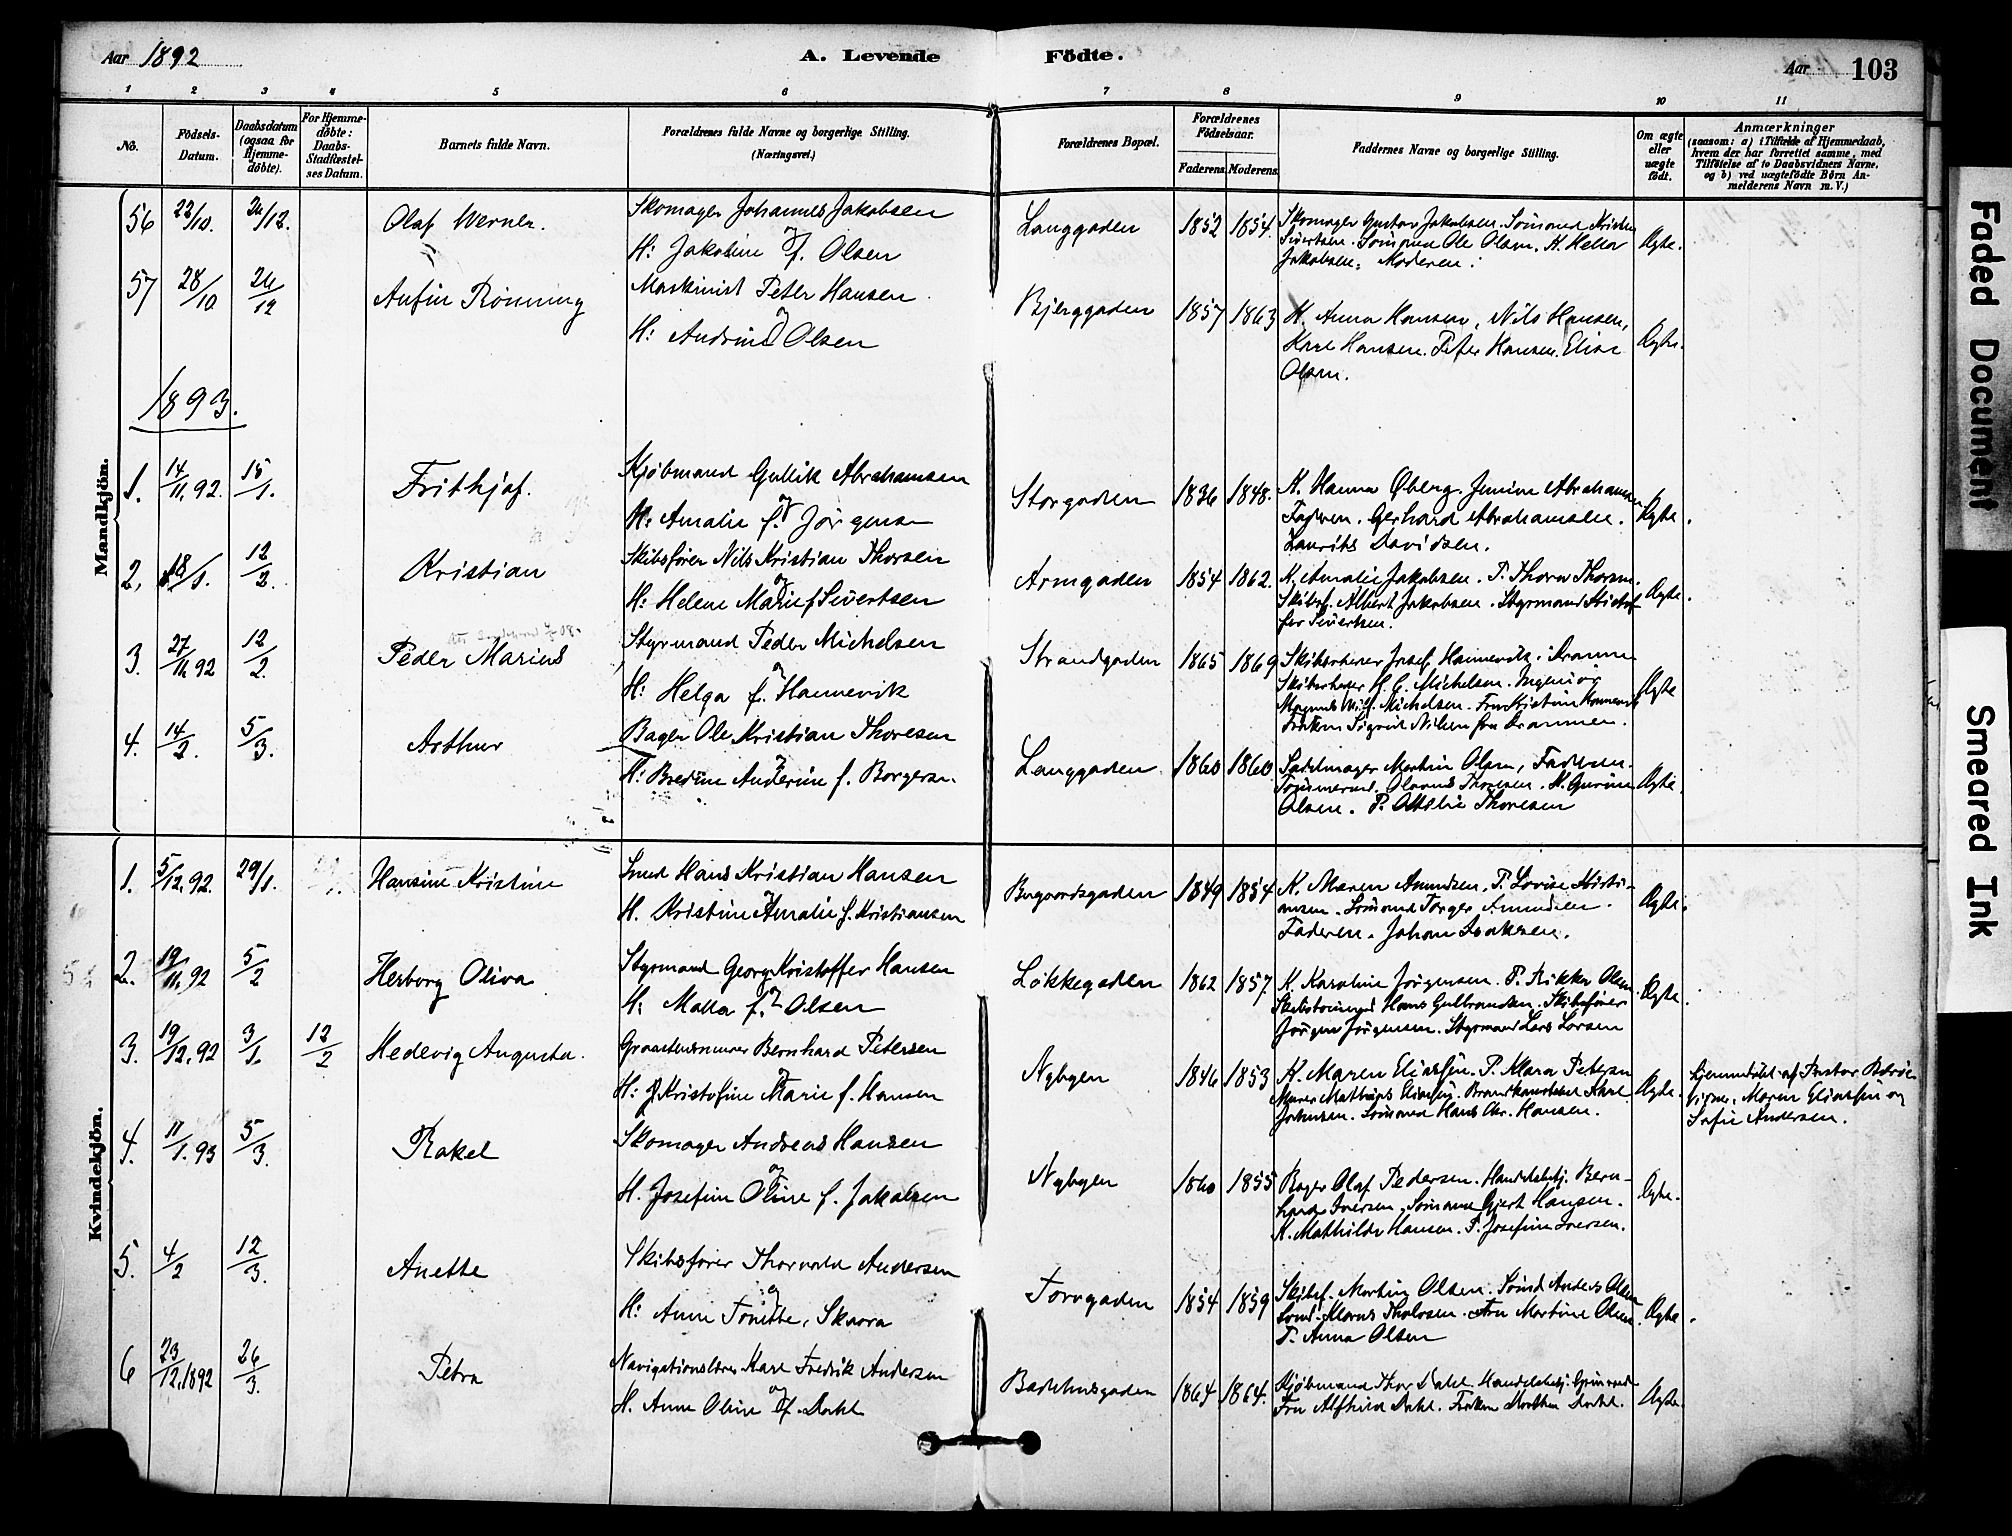 Aar 1892
A. Levende Födte.
Aar 103
1 2 3 4 5 6 7 8 9 10 11
No.
Födsels-Datum.
Daabsdatum (ogsaa for Hjemme-döbte).
For Hjemme-döbte: Daabs-Stadfæstel-ses Datum.
Barnets fulde Navn.
Forældrenes fulde Navne og borgerlige Stilling. (Næringsvei.)
Forældrenes Bopæl.
Forældrenes Födselsaar.
Faderens. Moderens.
Faddernes Navne og borgerlige Stilling.
Om ægte eller uægte födt.
Anmærkninger (saasom: a) i Tilfælde af Hjemmedaab, hvem der har forrettet samme, med Tilföielse af to Daabsvidners Navne, og b) ved uægtefödte Börn An-melderens Navn m. V.)
Mandkjön.
56 22/10. 26/12. Olaf Werner. Skomager Johannes Jakobsen
og
H: Jakobine f. Olsen
Langgaden 1852 1854. Skomager Gustav Jakobsen. Sömand
Sivertsen. Sömand Ole Olsen. K. Helle
Jakobsen. Moderen. Ægte.
57 28/10 26/12 Anfin Rönning Maskinist Peter Hansen
og
H: Andrine Olsen
Bjerggaden 1857 1863 K. Anna Hansen, Nils Hansen,
Karl Hansen. Peter Hansen. Elise
Olsen. Ægte.
1893.
1. 14/11.92. 15/1. Frithjof. Kjöbmand Gullik Abrahamsen
og
H: Amalie f. Jörgensen
Storgaden 1836 1848. K. Hanna Öberg. Jensine Abrahamsen
Faderen. Gerhard Abrahamsen.
Laurits Davidsen. Ægte.
2. 18/1. 12/2. Kristian Skibsförer Nils Kristian Thorsen
og
H: Helene Marie f. Sivertsen
Armgaden 1854 1862. K. Amalie Jakobsen. P. Thora Thorsen.
Skibsf. Albert Jakobsen. Styrmand Kristof
fer Sivertsen. Ægte.
3. 27/11.92 12/2. Peder Marius Styrmand Peder Michelsen
og
H: Helga f. Hannevik
Strandgaden 1865 1869 Skibsreder Josef Hannevik i Drammen
Skibsreder H. C. Michelsen. Ingeniör
Magnus Michelsen. Fru Kristine Hannevik
Fröken Sigrid Nilsen fra Drammen. Ægte
4. 14/2. 5/3. Arthur Bager Ole Kristian Thoresen
og
H: Bredine Anderine f. Borgersen.
Langgaden 1860 1860 Sadelmager Martin Olsen, Faderen.
Tömmermd. Olaves Thoresen. K. Gurine
Olsen. P. Ottilie Thoresen Ægte.
Kvindekjön.
1. 5/12.92. 29/1. Hansine Kristine Smed Hans Kristian Hansen
og
H. Kristine Amalie f. Kristiansen
Bugaardsgaden 1849 1854 K. Maren Amundsen. P. Lovise Kristi-
ansen. Sömand Torger Amundsen.
Faderen. Johan Isaksen. Ægte.
2. 19/11.92 5/2 Herborg Oliva Styrmand Georg Kristoffer Hansen
og
H: Malla f. Olsen
Lökkegaden 1862 1857 K Karoline Jörgensen. P. Rikka Olsen.
Skibstömmermd Hans Gulbrandsen. Skibsförer
Jörgen Jörgensen. Styrmand Lars Larsen Ægte.
3. 19/12.92 3/1. 12/2 Hedevig Augusta. Graastensmurer Bernhard Petersen
og
H: Kristofine Marie f. Hansen
Nybyen 1846 1853 K. Maren Eliassen. P. Klara Petersen
Murer Mathias Eliassen. Brandkonstabel Karl
Johnsen. Sömand Hans Chr. Hansen. Ægte.
hjemmedöbt af Pastor
Vidner. Maren Eliassen og
Sofie Andersen.
4. 11/1.93 5/3. Rakel Skomager Andreas Hansen
og
H. Josefine Oline f. Jakobsen
Nybyen 1860 1855 Bager Olaf Pedersen. Handelsbetj. Bern-
hard Iversen. Sömand Gjert Hansen.
K. Mathilde Hansen. P. Josefine Iversen. Ægte.
5. 4/2 12/3. Anette Skibsförer Thorvald Andersen
og
H: Anne Tonette, Skaara
Torvgaden 1854 1859 Skibsf. Martin Olsen. Sömd Anders Olsen
Sömd. Marius Thoresen. Fru Martine Olsen.
P. Anna Olsen Ægte.
6 23/12.1892 26/3. Petra Navigationslærer Karl Fredrik Andersen
og
H. Anne Oline f. Dahl
Badehusgaden 1864 1864. Kjöbmand Thor Dahl. Handelsbetj.
Fru Alfhild Dahl. Fröken Marthea Dahl. Ægte.
Faded Document
Smeared Ink